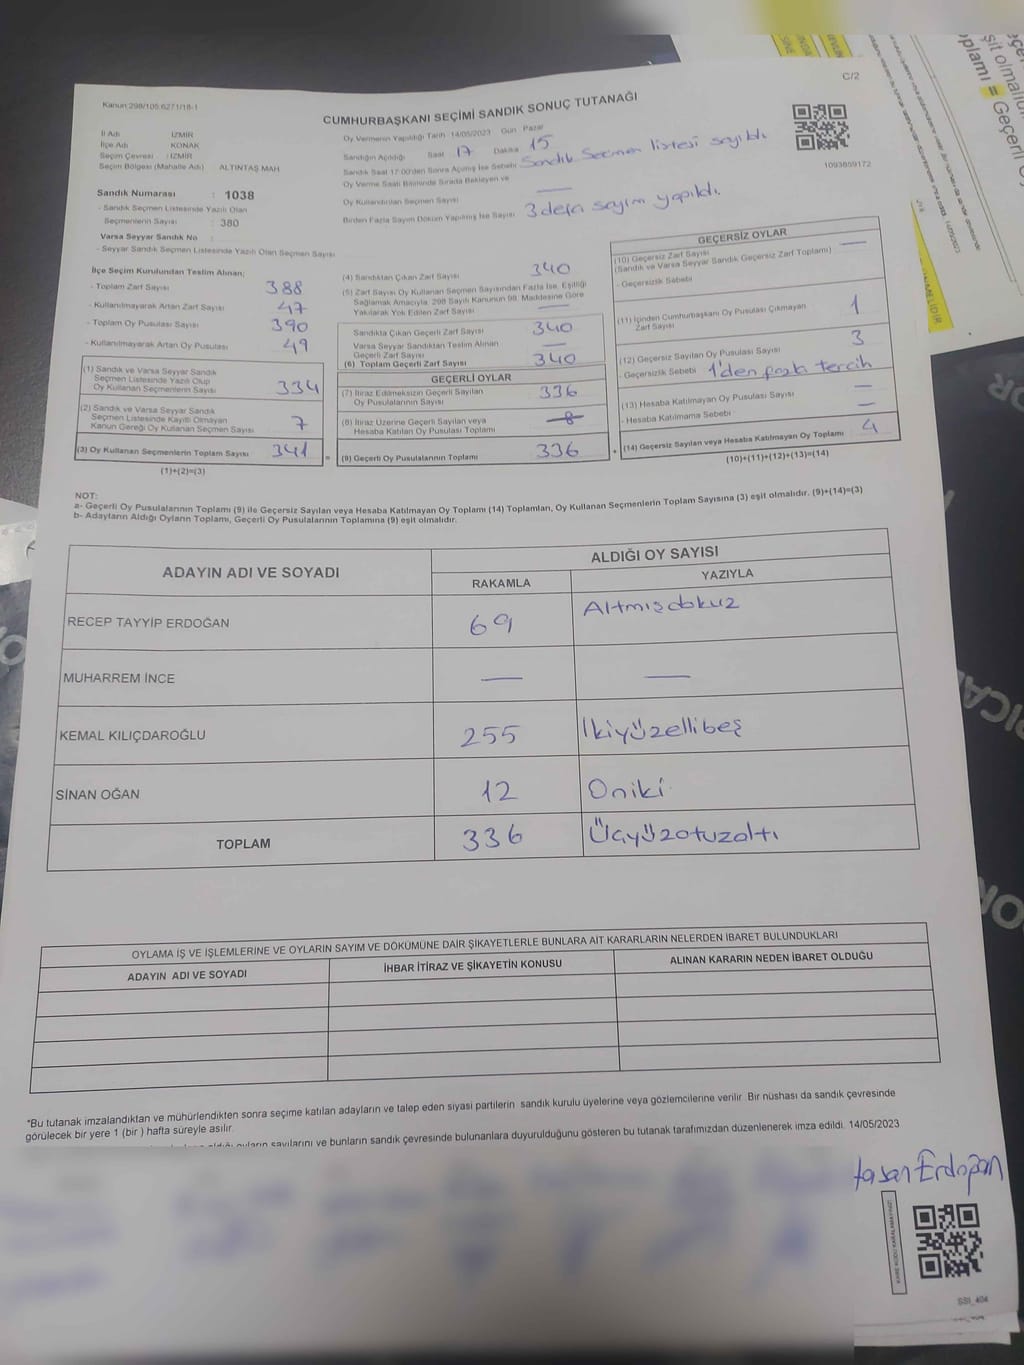 C/2
Kanun:298/105:6271/18-1
CUMHURBAŞKANI SEÇİMİ SANDIK SONUÇ TUTANAĞI
İl Adı İZMİR
İlçe Adı KONAK
Seçim Çevresi : İZMİR
Seçim Bölgesi (Mahalle Adı) ALTINTAŞ MAH
Oy Vermenin Yapıldığı Tarih 14/05/2023 Gün Pazar
Sandığın Açıldığı Saat 17 Dakika 15
Sandık Saat 17:00'den Sonra Açılmış İse Sebebi Sandık Seçmen listesi sayıldı
Oy Verme Saati Bitiminde Sırada Bekleyen ve
Oy Kullandırılan Seçmen Sayısı —
Birden Fazla Sayım Döküm Yapılmış İse Sayısı 3 defa sayım yapıldı.
1093859172
Sandık Numarası : 1038
- Sandık Seçmen Listesinde Yazılı Olan
Seçmenlerin Sayısı : 380
Varsa Seyyar Sandık No
- Seyyar Sandık Seçmen Listesinde Yazılı Olan Seçmen Sayısı
İlçe Seçim Kurulundan Teslim Alınan;
- Toplam Zarf Sayısı 388
- Kullanılmayarak Artan Zarf Sayısı 47
- Toplam Oy Pusulası Sayısı 390
- Kullanılmayarak Artan Oy Pusulası 49
(1) Sandık ve Varsa Seyyar Sandık
Seçmen Listesinde Yazılı Olup
Oy Kullanan Seçmenlerin Sayısı 334
(2) Sandık ve Varsa Seyyar Sandık
Seçmen Listesinde Kayıtlı Olmayan
Kanun Gereği Oy Kullanan Seçmen Sayısı 7
(3) Oy Kullanan Seçmenlerin Toplam Sayısı 341 =
(1)+(2)=(3)
(4) Sandıktan Çıkan Zarf Sayısı 340
(5) Zarf Sayısı Oy Kullanan Seçmen Sayısından Fazla İse, Eşitliği
Sağlamak Amacıyla, 298 Sayılı Kanunun 98. Maddesine Göre
Yakılarak Yok Edilen Zarf Sayısı —
Sandıkta Çıkan Geçerli Zarf Sayısı 340
Varsa Seyyar Sandıktan Teslim Alınan
Geçerli Zarf Sayısı —
(6) Toplam Geçerli Zarf Sayısı 340
GEÇERLİ OYLAR
(7) İtiraz Edilmeksizin Geçerli Sayılan
Oy Pusulalarının Sayısı 336
(8) İtiraz Üzerine Geçerli Sayılan veya
Hesaba Katılan Oy Pusulası Toplamı
(9) Geçerli Oy Pusulalarının Toplamı 336 +
GEÇERSİZ OYLAR
(10) Geçersiz Zarf Sayısı —
(Sandık ve Varsa Seyyar Sandık Geçersiz Zarf Toplamı)
- Geçersizlik Sebebi
(11) İçinden Cumhurbaşkanı Oy Pusulası Çıkmayan 1
Zarf Sayısı
(12) Geçersiz Sayılan Oy Pusulası Sayısı 3
- Geçersizlik Sebebi 1'den fazla tercih
(13) Hesaba Katılmayan Oy Pusulası Sayısı —
- Hesaba Katılmama Sebebi —
(14) Geçersiz Sayılan veya Hesaba Katılmayan Oy Toplamı 4
(10)+(11)+(12)+(13)=(14)
NOT:
a- Geçerli Oy Pusulalarının Toplamı (9) ile Geçersiz Sayılan veya Hesaba Katılmayan Oy Toplamı (14) Toplamları, Oy Kullanan Seçmenlerin Toplam Sayısına (3) eşit olmalıdır. (9)+(14)=(3)
b- Adayların Aldığı Oyların Toplamı, Geçerli Oy Pusulalarının Toplamına (9) eşit olmalıdır.
ADAYIN ADI VE SOYADI
ALDIĞI OY SAYISI
RAKAMLA YAZIYLA
RECEP TAYYİP ERDOĞAN 69 Altmışdokuz
MUHARREM İNCE — —
KEMAL KILIÇDAROĞLU 255 İkiyüzellibeş
SİNAN OĞAN 12 Oniki
TOPLAM 336 Üçyüzotuzaltı
OYLAMA İŞ VE İŞLEMLERİNE VE OYLARIN SAYIM VE DÖKÜMÜNE DAİR ŞİKAYETLERLE BUNLARA AİT KARARLARIN NELERDEN İBARET BULUNDUKLARI
ADAYIN ADI VE SOYADI İHBAR İTİRAZ VE ŞİKAYETİN KONUSU ALINAN KARARIN NEDEN İBARET OLDUĞU
*Bu tutanak imzalandıktan ve mühürlendikten sonra seçime katılan adayların ve talep eden siyasi partilerin sandık kurulu üyelerine veya gözlemcilerine verilir. Bir nüshası da sandık çevresinde
görülecek bir yere 1 (bir ) hafta süreyle asılır.
aldığı oyların sayılarını ve bunların sandık çevresinde bulunanlara duyurulduğunu gösteren bu tutanak tarafımızdan düzenlenerek imza edildi. 14/05/2023
Hasan Erdoğan
KARE KODU KARALAMAYINIZ
SSI_404